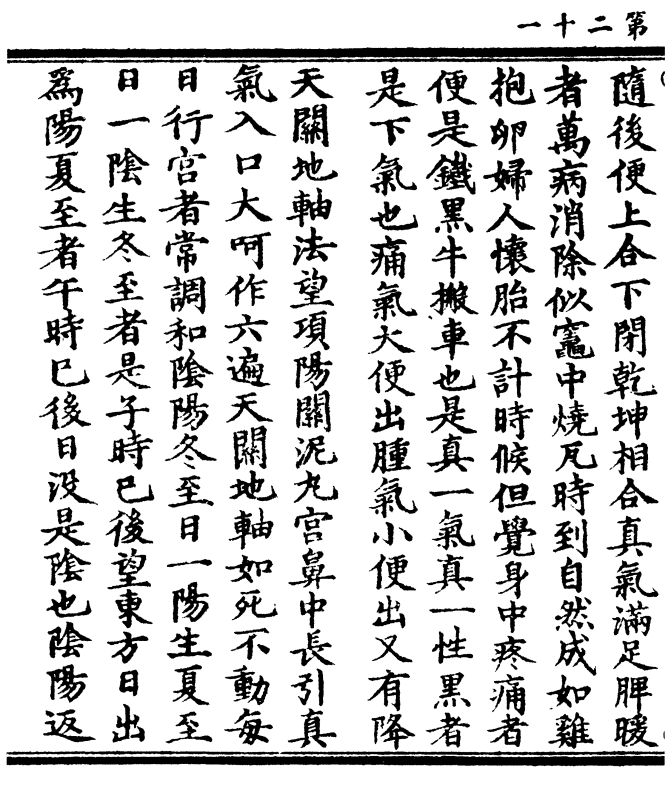 第二十一
隨後便上合下閉乾坤相合真氣滿足脾暖
者萬病消除似竈中燒瓦時到自然成如雞
抱卵婦人懷胎不計時候但覺身中疼痛者
便是鐵黑牛搬車也是真一氣真一性黑者
是下氣也痛氣大便出腫氣小便出又有降
天關地軸法望項陽關泥丸宮鼻中長引真
氣入口大呵作六遍天關地軸如死不動每
日行宮者常調和陰陽冬至日一陽生夏至
日一陰生冬至者是子時巳後望東方日出
為陽夏至者午時巳後日没是陰也陰陽返